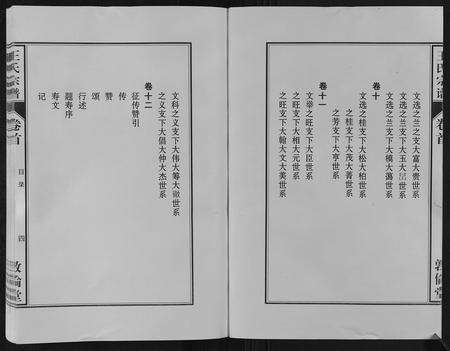 王氏宗谱
卷首
敦倫堂
卷十
文选之兰之文大富大贵世系
文选之兰支下大玉大 世系
之兰支下大模大蕩世系
文选之桂支下大松大柏世系
之桂支下大茂大善世系
之芳支下大亨世系
卷十一
文举之旺支下大臣世系
之旺支下大相大元世系
之旺支下大翰大文大美世系
文科之义支下大伟大筹大 世系
之义支下大倡大仲大杰世系
卷十二
征传赞引
传
赞
颂
行述
题寿序
寿文
记
王氏宗谱
卷首
目录
四
敦倫堂